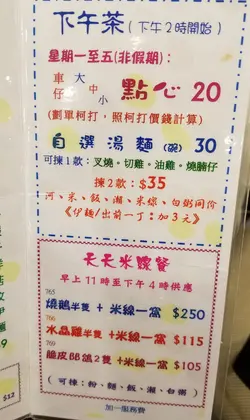 下午茶（下午2時開始）
星期一至五(非假期)：
車仔 大中小 點心 20
(劃單柯打，照柯打價錢計算)
自選湯麵(碗) 30
可揀1款：叉燒。切雞。油雞。燒腩仔
揀2款：$35
河、米、飯、瀨、米線、白粥同價
《伊麵/出前一丁：加3元》
天天米線餐
早上11時至下午4時供應
765
燒鵝半隻 +米線一窩 $250
766
水晶雞半隻 +米線一窩 $115
769
脆皮BB鴿2隻 +米線一窩 $105
（可揀：粉、麵、飯、瀨、白粥）
加一服務費
$12